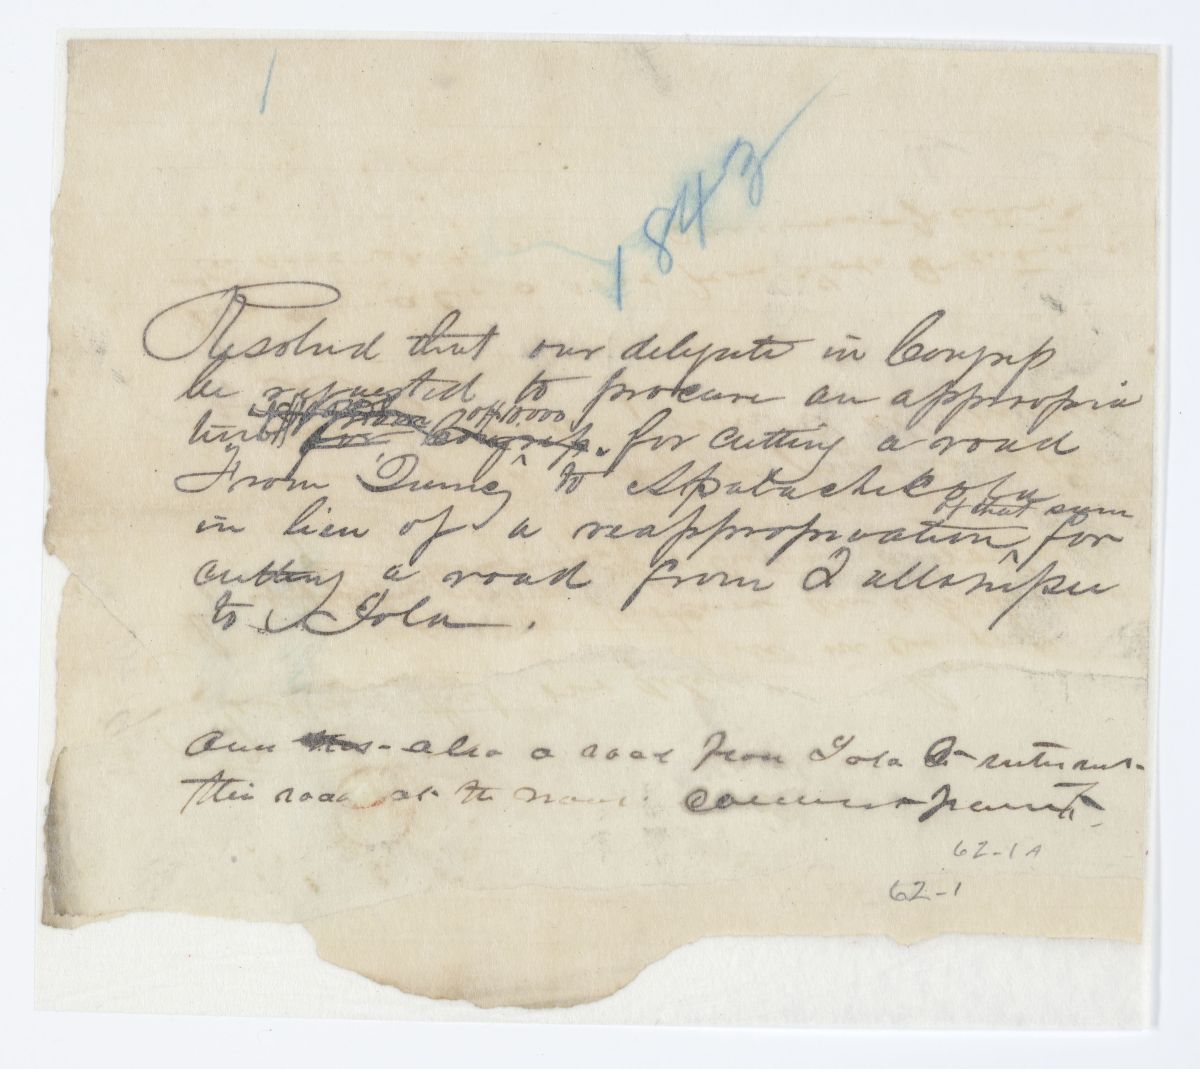 1
1843
Resolved that our delegate in Congress
be requested to procure an appropria
tion of $10,000
for Congress. for cutting a road
From Quincy to Apalachicola
of that sum
in lieu of a reappropriation for
cutting a road from Tallahassee
to Iola.
also a road from Iola to intersect
this road at the most convenient point
62-1A
62-1